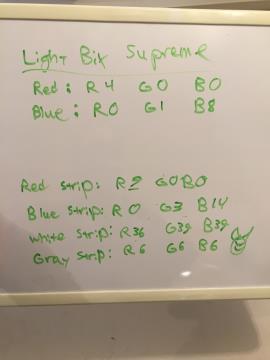 Light Bix Supreme
Red: R4 G0 B0
Blue: R0 G1 B8
Red strip: R2 G0 B0
Blue strip: R0 G3 B14
White strip: R36 G39 B39
Gray strip: R6 G6 B6